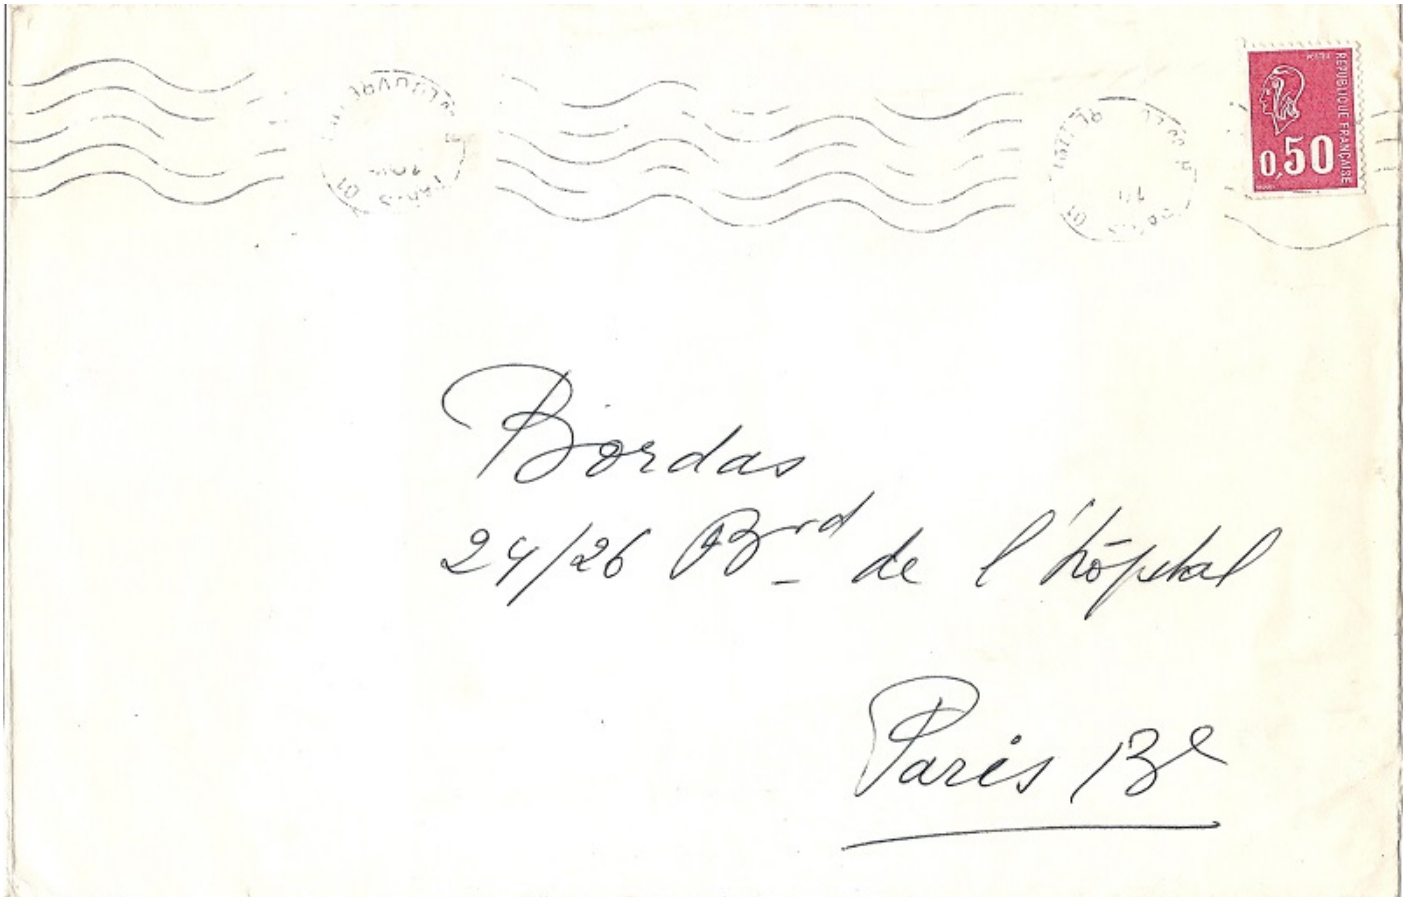 REPUBLIQUE FRANÇAISE
0,50
Bordas
24/26 Brd de l'hôpital
Paris 13e